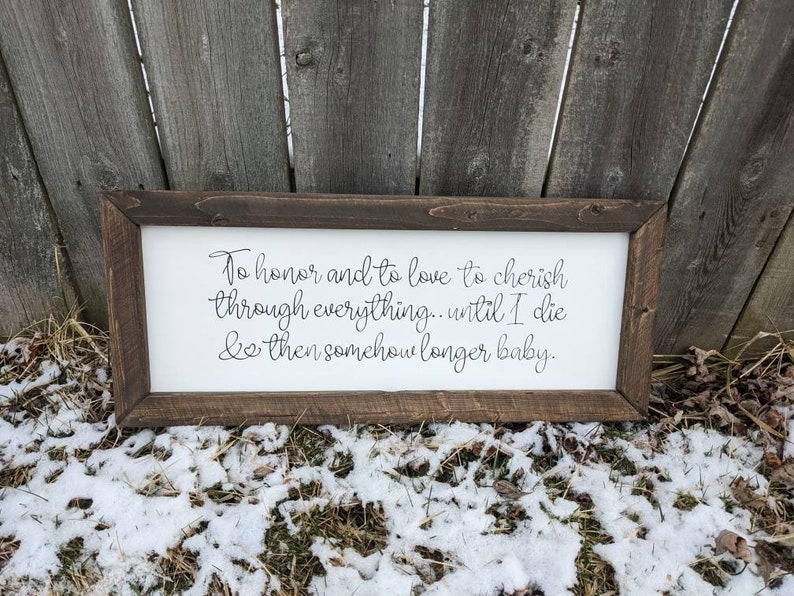 To honor and to love to cherish
through everything.. until I die
& then somehow longer baby.